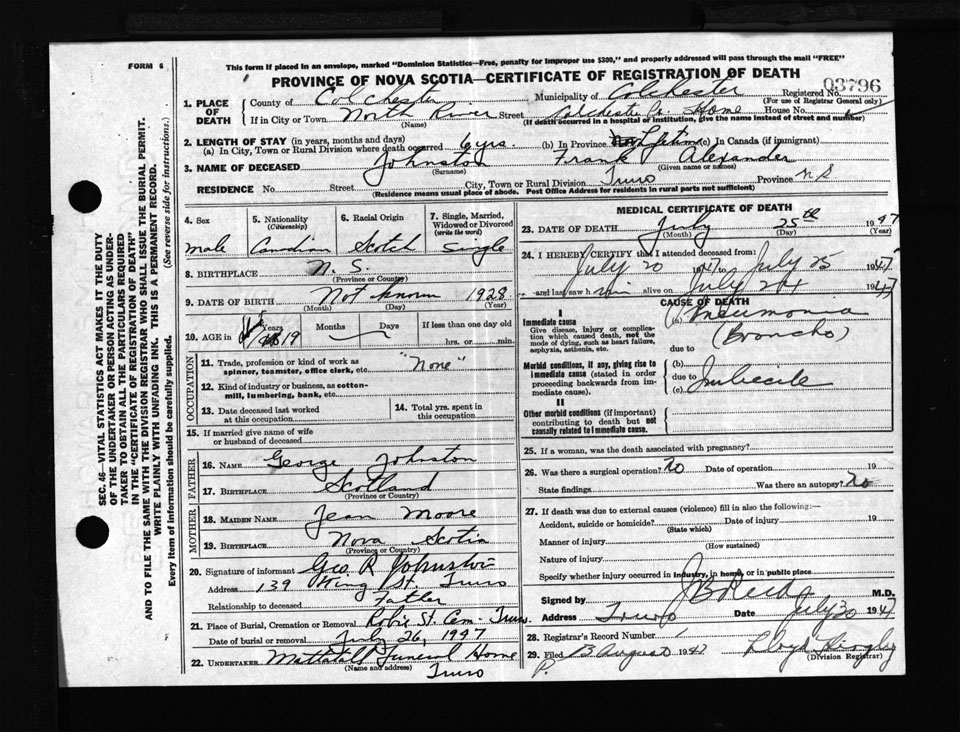 FORM 6
This form if placed in an envelope, marked "Dominion Statistics—Free, penalty for improper use $300," and properly addressed will pass through the mail "FREE"
PROVINCE OF NOVA SCOTIA—CERTIFICATE OF REGISTRATION OF DEATH
03796
1. PLACE OF DEATH
County of Colchester Municipality of Colchester Registered No.
(For use of Registrar General only)
If in City or Town North River Street Colchester Co. Home House No.
(Name) (If death occurred in a hospital or institution, give the name instead of street and number)
2. LENGTH OF STAY (in years, months and days)
(a) In City, Town or Rural Division where death occurred 6 yrs. (b) In Province Lifetime (c) In Canada (if immigrant)
3. NAME OF DECEASED Johnston Frank Alexander
(Surname) (Given name or names)
RESIDENCE No. Street City, Town or Rural Division Truro Province N S
(Residence means usual place of abode. Post Office Address for residents in rural parts not sufficient)
4. Sex
male
5. Nationality
(Citizenship)
Canadian
6. Racial Origin
Scotch
7. Single, Married, Widowed or Divorced
(write the word)
Single
8. BIRTHPLACE N. S.
(Province or Country)
9. DATE OF BIRTH Not known 1928
(Month) (Day) (Year)
10. AGE in Years 19 Months Days If less than one day old
hrs. or min.
OCCUPATION
11. Trade, profession or kind of work as spinner, teamster, office clerk, etc. "None"
12. Kind of industry or business, as cotton-mill, lumbering, bank, etc.
13. Date deceased last worked at this occupation
14. Total yrs. spent in this occupation
15. If married give name of wife or husband of deceased
FATHER
16. NAME George Johnston
17. BIRTHPLACE Scotland
(Province or Country)
MOTHER
18. MAIDEN NAME Jean Moore
19. BIRTHPLACE Nova Scotia
(Province or Country)
20. Signature of informant Geo R Johnston
Address 139 King St. Truro
Relationship to deceased Father
21. Place of Burial, Cremation or Removal Robie St. Cem. Truro.
Date of burial or removal July 26, 1947
22. UNDERTAKER Mattatall Funeral Home
(Name and address) Truro
MEDICAL CERTIFICATE OF DEATH
23. DATE OF DEATH July 25th 1947
(Month) (Day) (Year)
24. I HEREBY CERTIFY that I attended deceased from:
July 20 1947 to July 25 1947
and last saw him alive on July 24 1947
CAUSE OF DEATH
I
Immediate cause
Give disease, injury or complication which caused death, not the mode of dying, such as heart failure, asphyxia, asthenia, etc.
(a) Pneumonia
(Broncho)
due to
Morbid conditions, if any, giving rise to immediate cause (stated in order proceeding backwards from immediate cause).
(b)
due to
(c) Imbecile
II
Other morbid conditions (if important) contributing to death but not causally related to immediate cause.
25. If a woman, was the death associated with pregnancy?
26. Was there a surgical operation? No Date of operation 19
State findings Was there an autopsy? No
27. If death was due to external causes (violence) fill in also the following:—
Accident, suicide or homicide? Date of injury 19
(State which)
Manner of injury
(How sustained)
Nature of injury
Specify whether injury occurred in industry, in home, or in public place
Signed by M.D.
Address Truro Date July 30 1947
28. Registrar's Record Number 1
29. Filed 13 August 1947 Lloyd
(Division Registrar)
P.
SEC. 46—VITAL STATISTICS ACT MAKES IT THE DUTY OF THE UNDERTAKER OR PERSON ACTING AS UNDERTAKER TO OBTAIN ALL THE PARTICULARS REQUIRED IN THE "CERTIFICATE OF REGISTRATION OF DEATH" AND TO FILE THE SAME WITH THE DIVISION REGISTRAR WHO SHALL ISSUE THE BURIAL PERMIT.
WRITE PLAINLY WITH UNFADING INK. THIS IS A PERMANENT RECORD.
Every item of information should be carefully supplied. (See reverse side for instructions.)